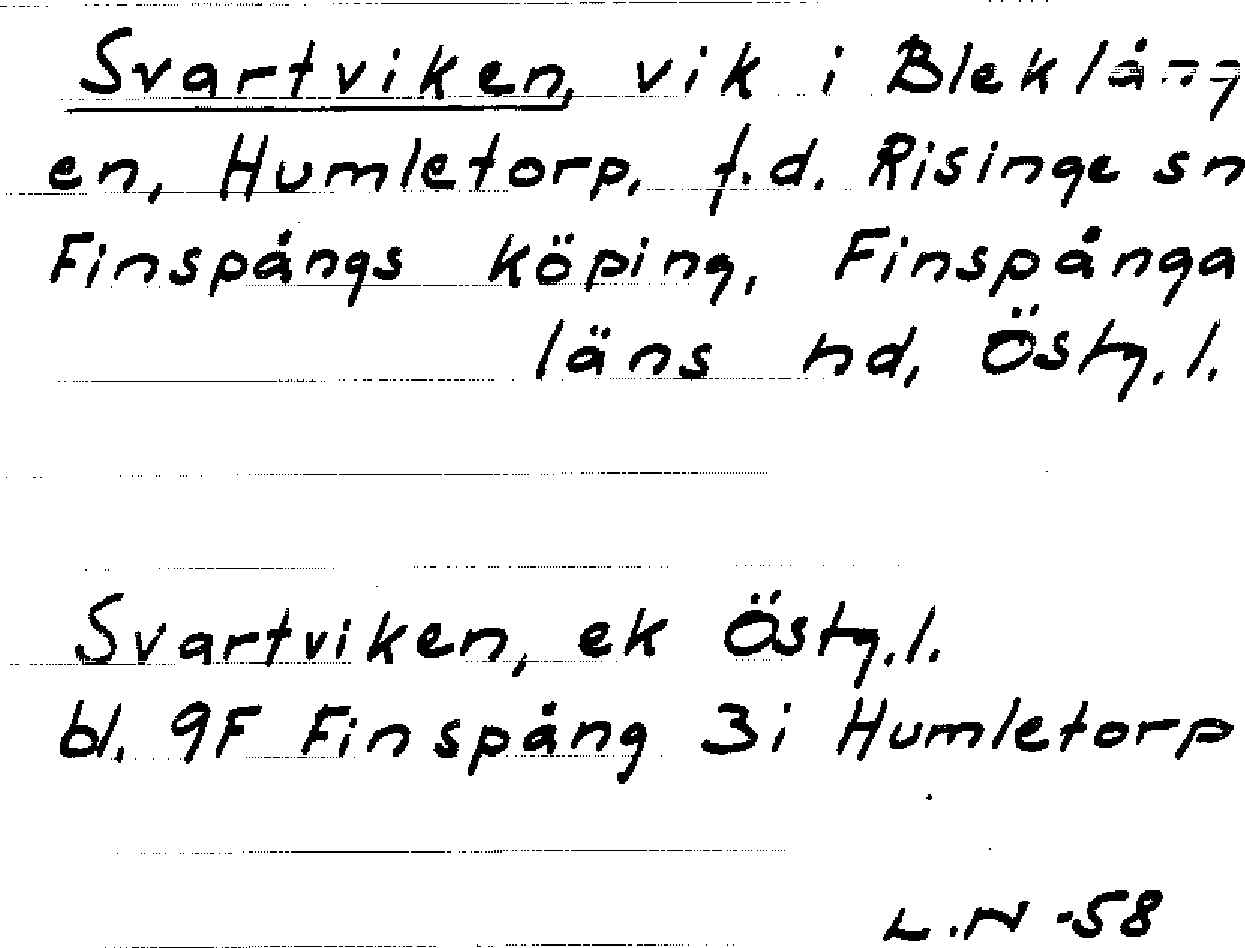 Svartviken, vik i Bleklång
en, Humletorp, f.d. Risinge sn
Finspångs köping, Finspånga
läns hd, Östg.l.
Svartviken, ek Östg.l.
bl. 9F Finspång 3i Humletorp
L.N -58